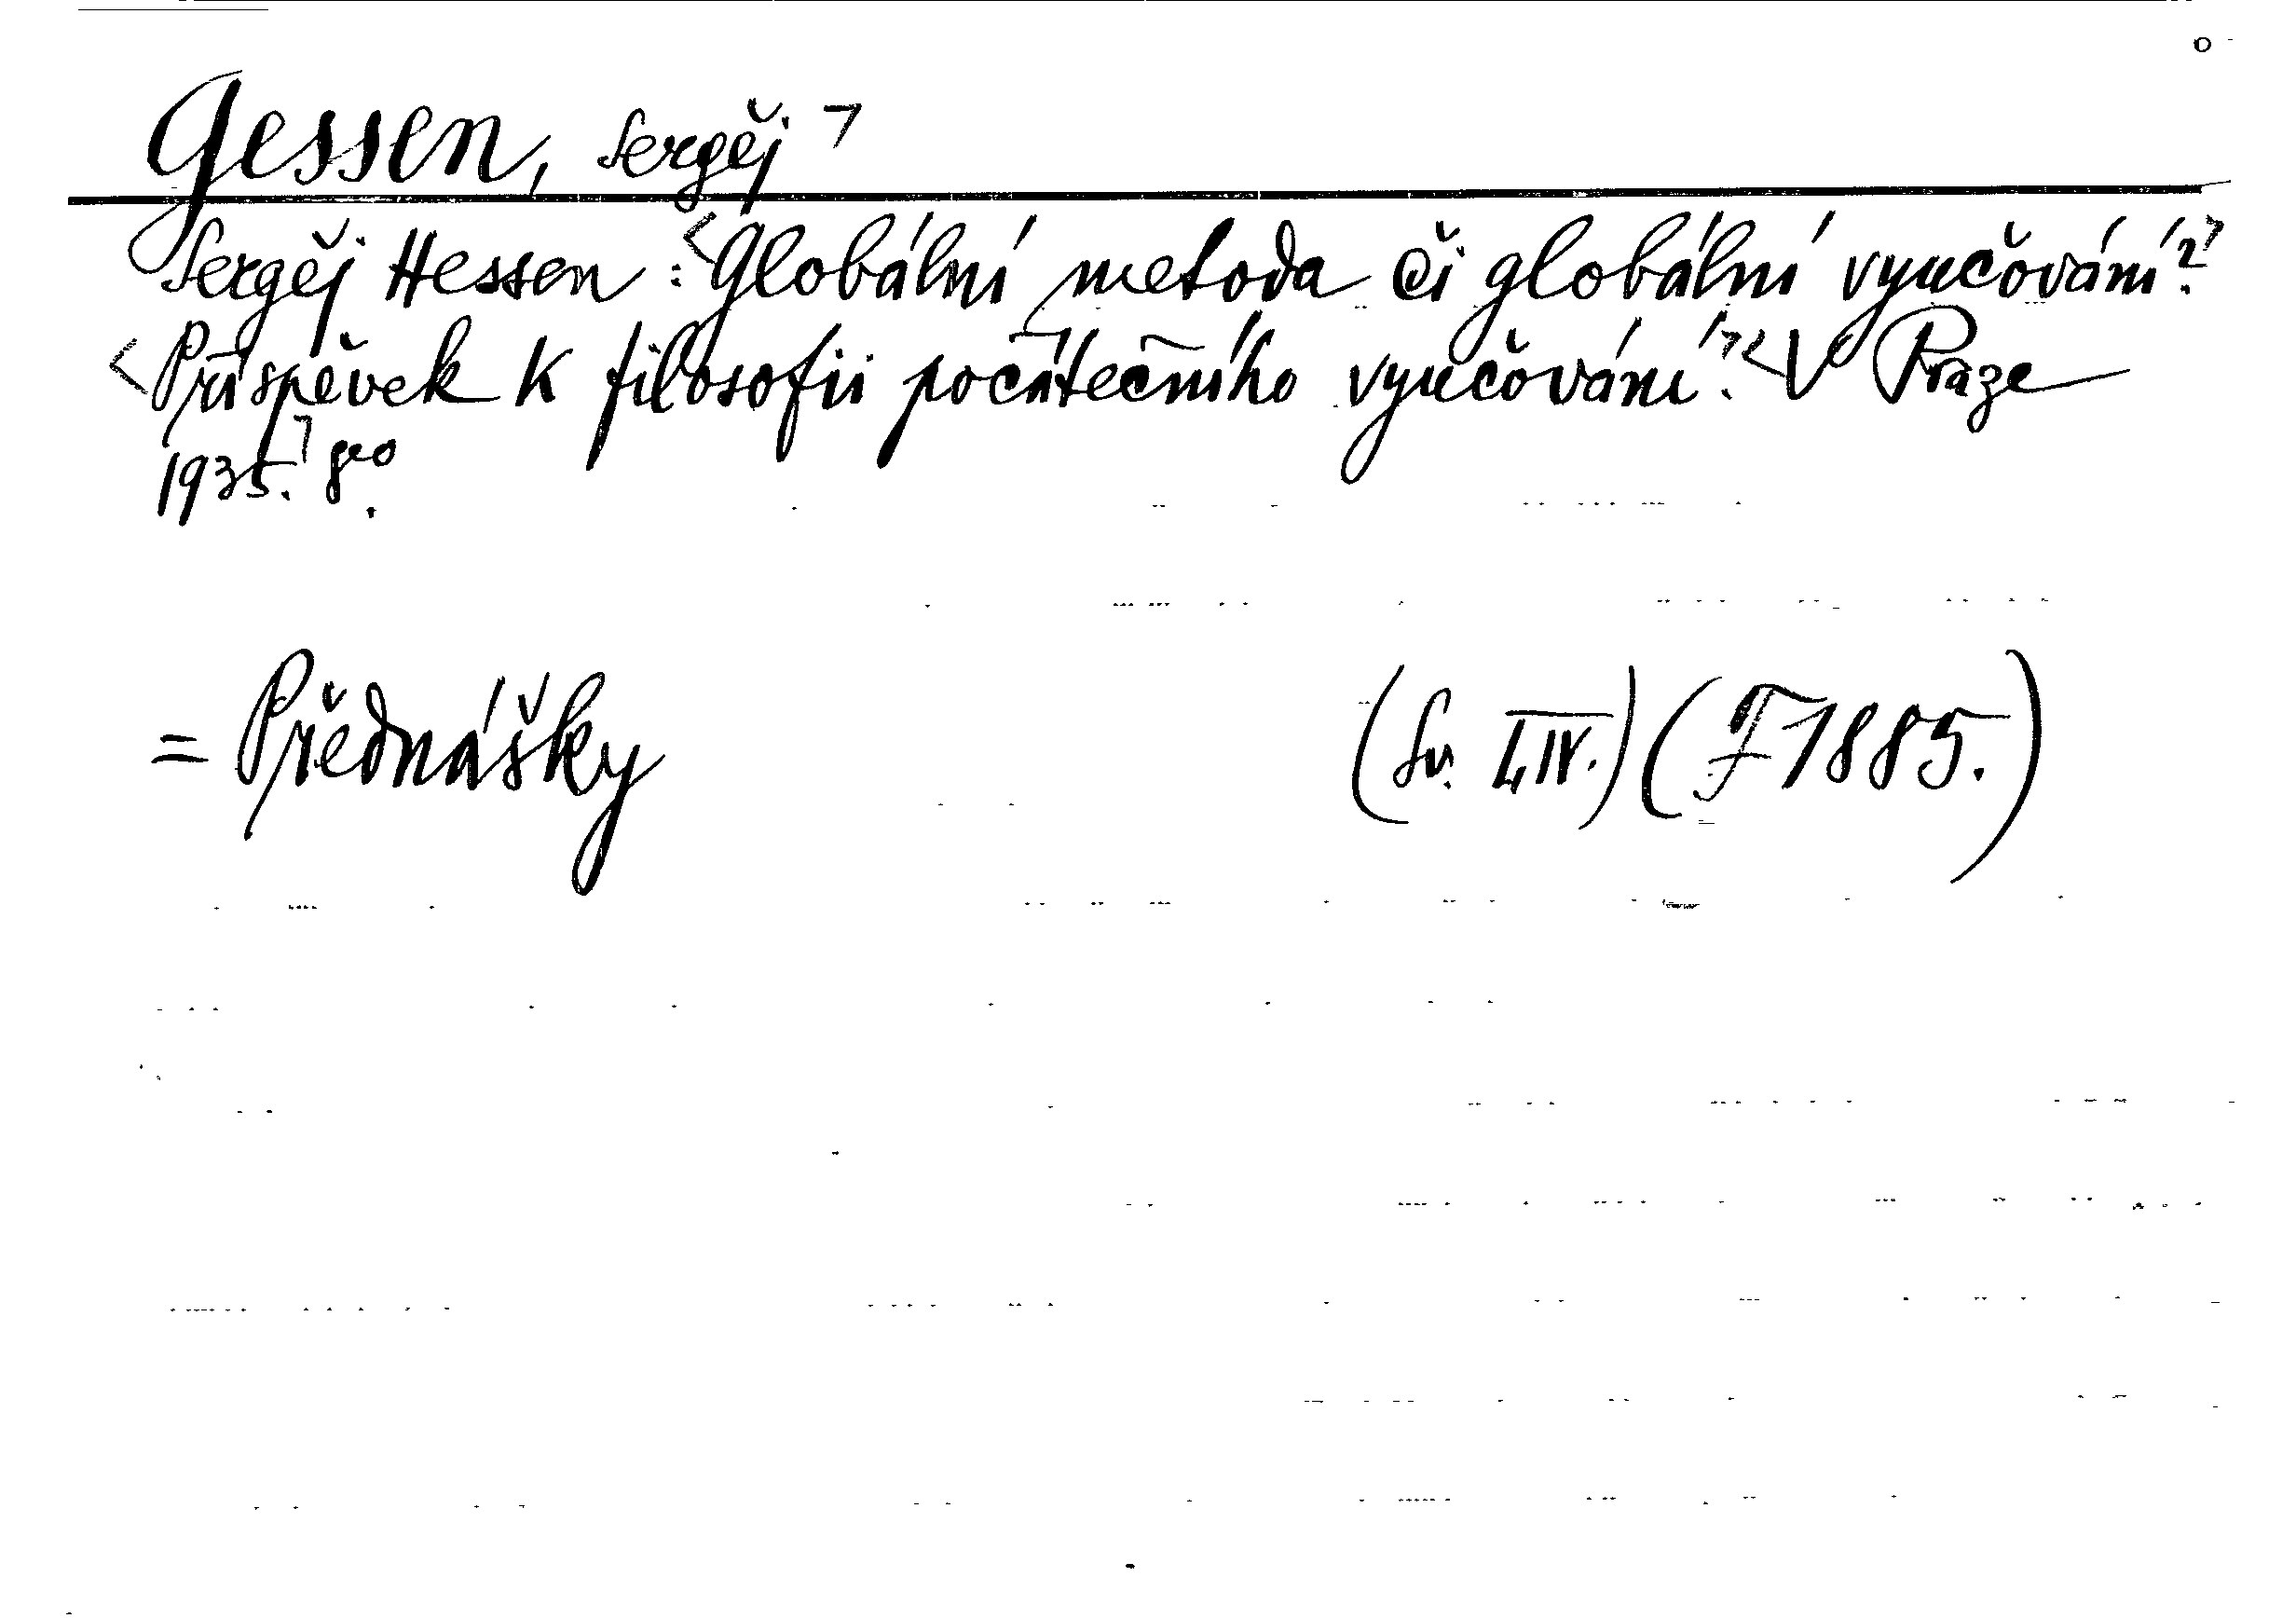 Gessen, Sergěj ㄱ
Sergěj Hessen: <Globální metoda či globální vyučování?ㄱ
<Příspěvek k filosofii počátečního vyučování.ㄱ <V Praze
1935.ㄱ 8°.
= Přednášky (Sv. LIV.) (F 1885.)